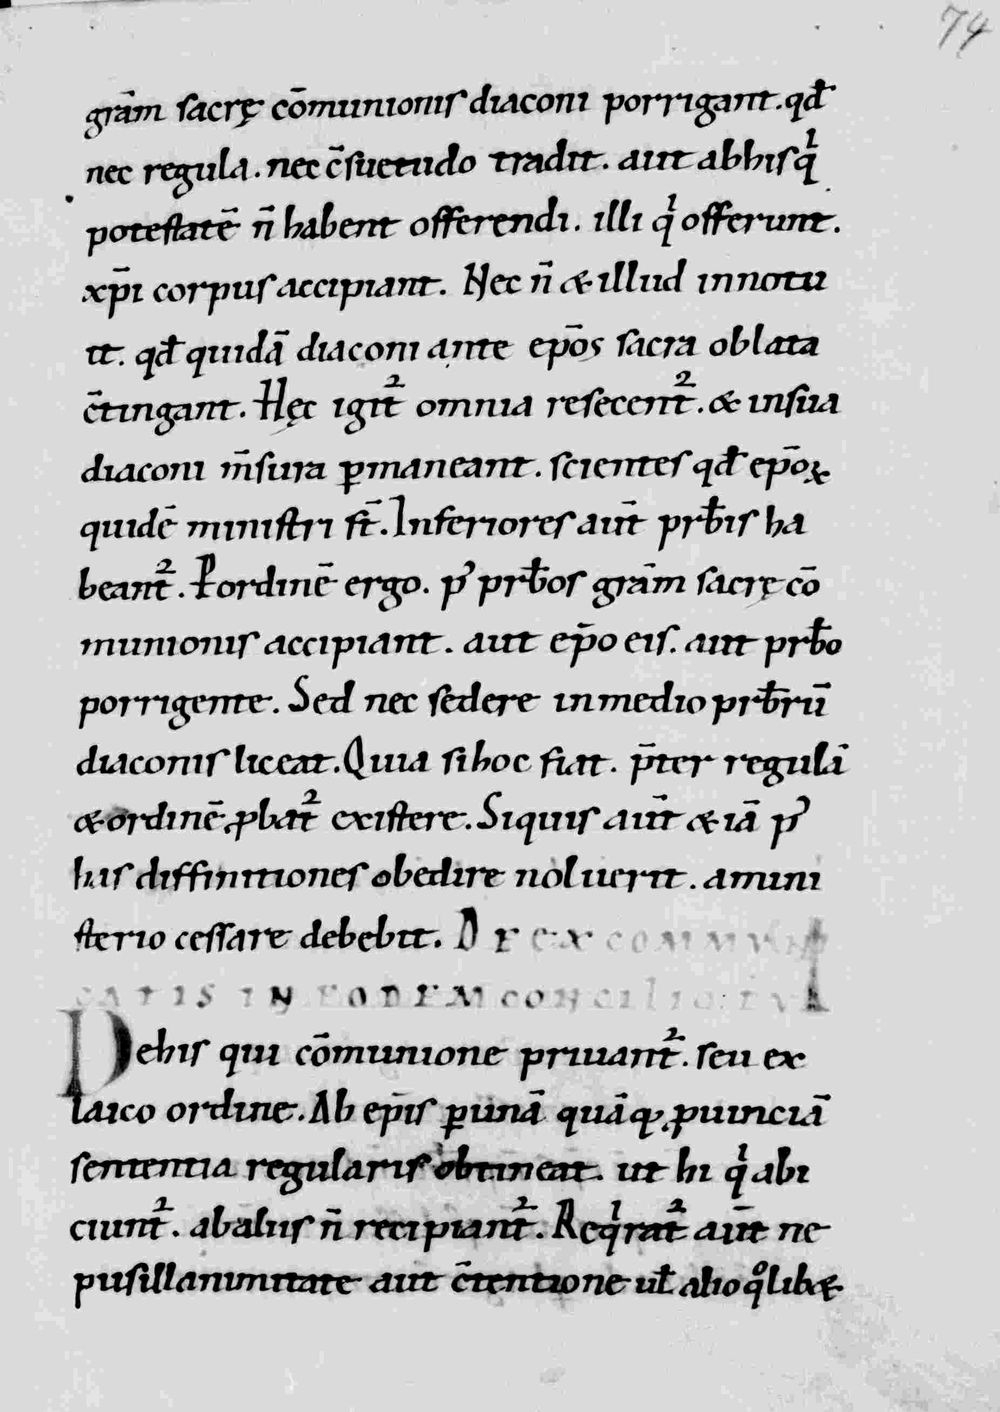 74
gr̄am sacrę cōmunionis diaconi porrigant. qđ
nec regula. nec c̄suetudo tradit. aut ab his qͥ
potestatē n̄ habent offerendi. illi qͥ offerunt.
xp̄i corpus accipiant. Nec n̄ & illud innotu
it. qđ quidā diaconi ante ep̄os sacra oblata
c̄tingant. Hęc igit᷑ omnia resecent᷑. & in sua
diaconi m̄sura ꝑmaneant. scientes qđ ep̄oꝝ
quidē ministri st̄. Inferiores aut̄ prƀis ha
beant᷑. Ꝑ ordinē ergo. pꝰ prƀos gr̄am sacrę cō
munionis accipiant. aut ep̄o eis. aut prƀo
porrigente. Sed nec sedere in medio prƀrū
diaconis liceat. Quia si hoc fiat. p̄ter regulā
& ordinē ꝓbat᷑ existere. Siquis aut̄ & iā pꝰ
has diffinitiones obedire noluerit. a mini
sterio cessare debebit. DE EXCOMMUNI
CATIS IN EODEM CONCILIO: TI V
De his qui cōmunione priuant᷑. seu ex
laico ordine. Ab ep̄is ꝑ unā quāq; ꝓuinciā
sententia regularis obtineat. ut hi qͥ abi
ciunt᷑. ab aliis n̄ recipiant᷑. Reqͥrat᷑ aut̄ ne
pusillanimitate aut c̄tentione uł alio qͦlib&